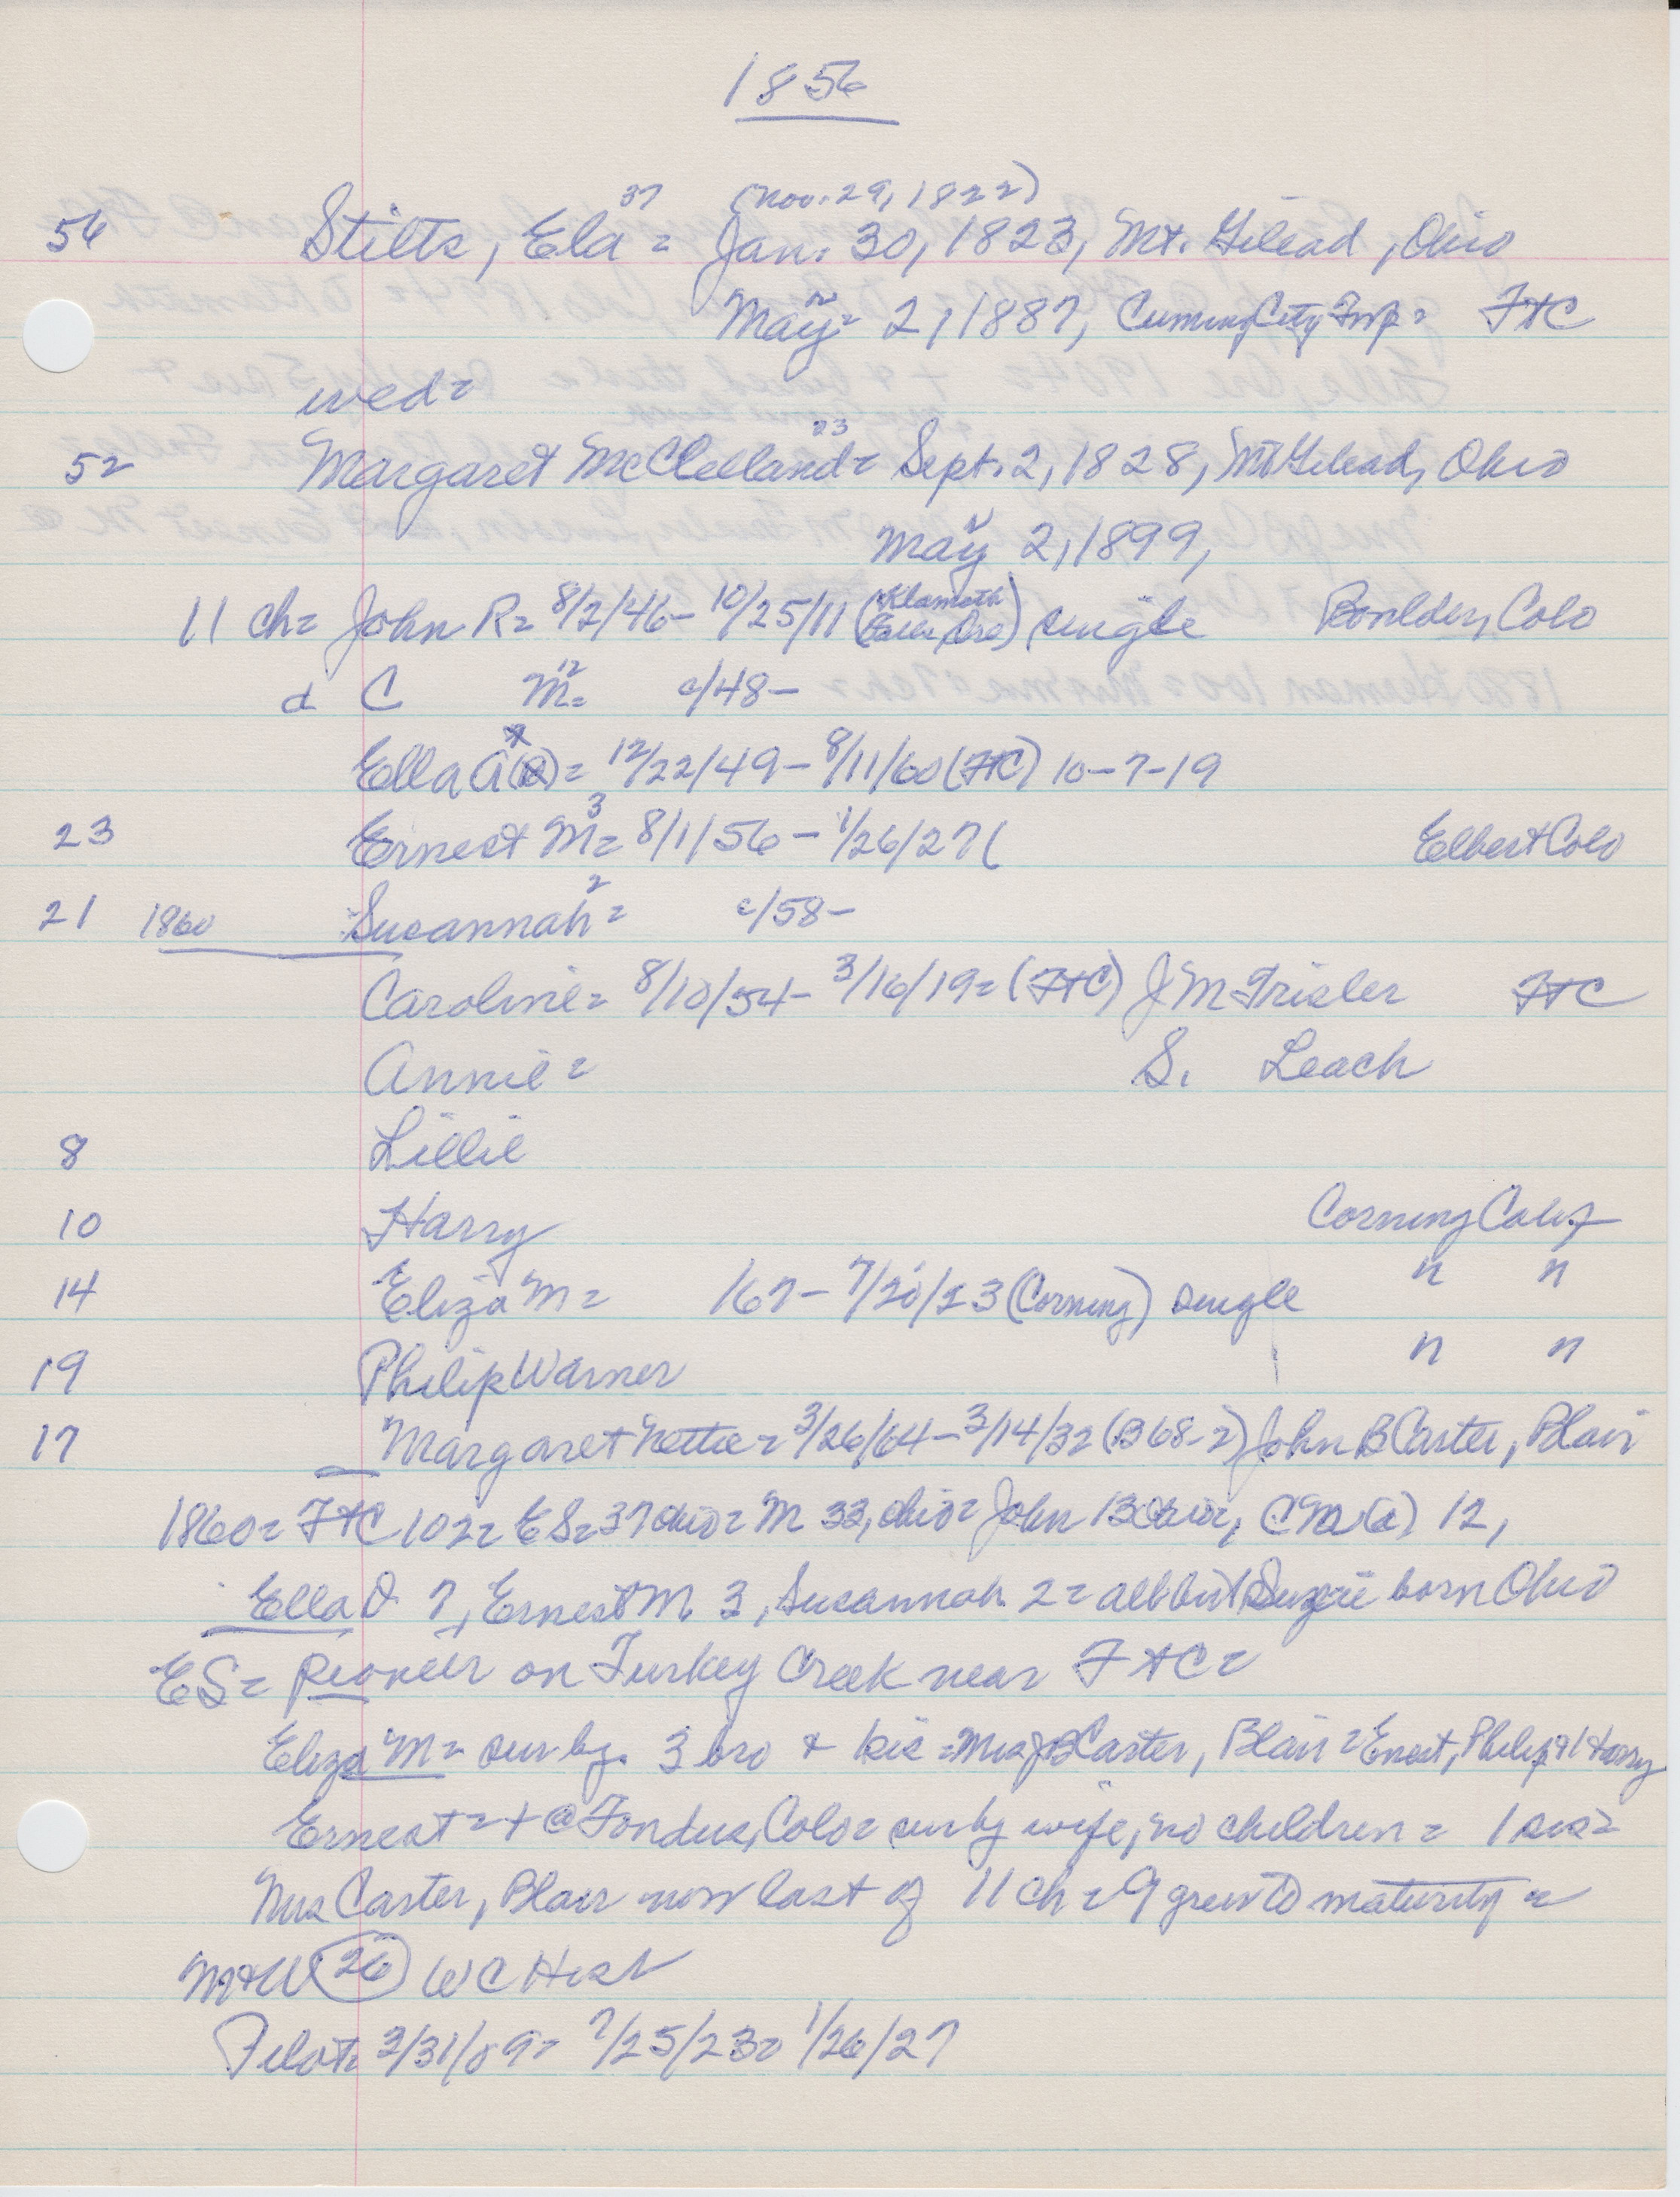 1856
37 (Nov. 29, 1822)
56 Stilts, Ela = Jan. 30, 1823, Mt. Gilead, Ohio
May 2, 1887, Cuming City Twp = FtC
wed =
23
52 Margaret McClelland = Sept. 2, 1828, Mt Gilead, Ohio
May 2, 1899,
11 ch = John R = 8/2/46 - 10/25/11 (Klamath Falls, Ore) single Boulder, Colo
d C M = 12 c/48 -
Ella A = 12/22/49 - 8/11/60 (FtC) 10-7-19
23 Ernest M = 3 8/1/56 - 1/26/27 ( Elbert Colo
21 1860 Susannah = 2 c/58 -
Caroline = 8/10/54 - 3/16/19 = (FtC) J M Trisler FtC
Annie = S. Leach
8 Lillie
10 Harry Corning Calif
14 Eliza M = /67 - 7/20/23 (Corning) single " "
19 Philip Warner " "
17 Margaret Nettie = 3/26/64 - 3/14/32 (B68-2) John B Carter, Blair
1860 = FtC 102 = ES = 37 Ohio = M 33, Ohio = John 13 12,
Ella 7, Ernest M 3, Susannah 2 = all but Suzie born Ohio
ES = Pioneer on Turkey Creek near FtC =
Eliza M = sur by 3 bro + sis = Mrs JB Carter, Blair = Ernest, Philip + Harry
Ernest = + @ Fondus, Colo = sur by wife, no children = 1 sis =
Mrs Carter, Blair now last of 11 ch = 9 grew to maturity =
M+W (26) WC Hist
Pilot = 3/31/09 = 7/25/23 = 1/26/27